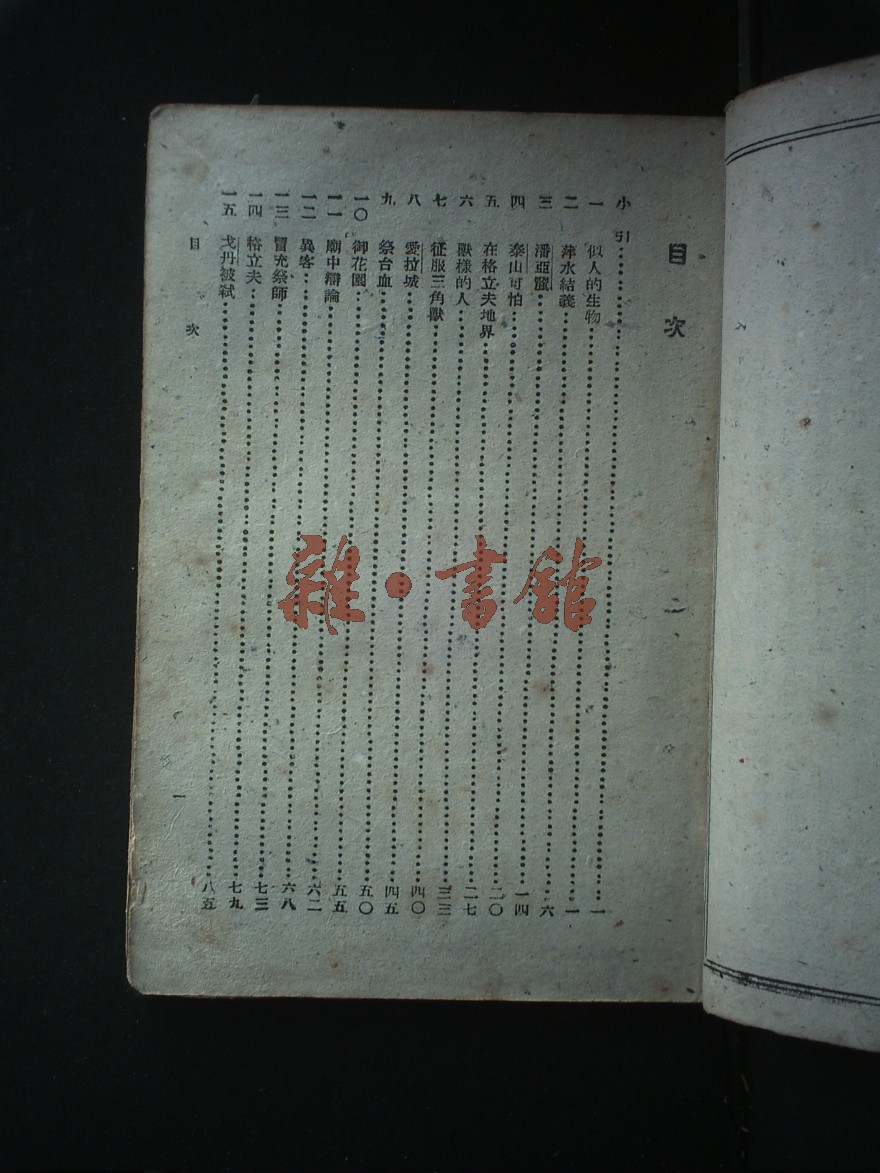 目次
小引……一
一 似人的生物……一
二 萍水結義……六
三 潘亞蠻……一四
四 泰山可怕……二〇
五 在格立夫地界……二七
六 獸樣的人……三三
七 征服三角獸……四〇
八 愛拉城……四五
九 祭台血……五〇
一〇 御花園……五五
一一 廟中辯論……六二
一二 異客……六八
一三 冒充祭師……七三
一四 格立夫……七九
一五 戈丹被弒……八五
目次
一
雜·書館